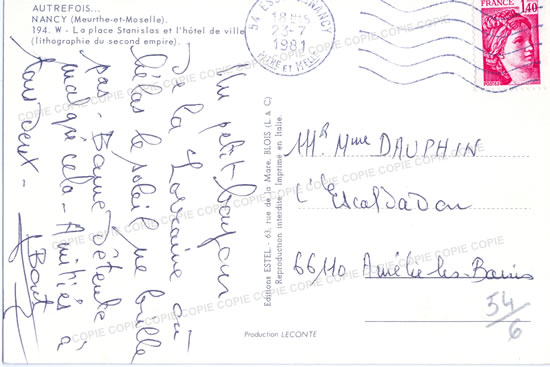 AUTREFOIS...
NANCY (Meurthe-et-Moselle).
194. W - La place Stanislas et l'hôtel de ville
(lithographie du second empire).
18H15
23-7
1981
FRANCE
1,40
POSTES
Un petit bonjour
de la Lorraine où
hélas le soleil ne brille
pas - Bonne détente
malgré cela - Amitiés à
tous deux -
Editions ESTEL - 63, rue de la Maire, BLOIS (L. & C)
Reproduction interdite - Imprimé en Italie.
Mr Mme DAUPHIN
L'Escaldadou
66110 Amélie les Bains
54/6
Production LECONTE
COPIE COPIE COPIE COPIE COPIE COPIE COPIE